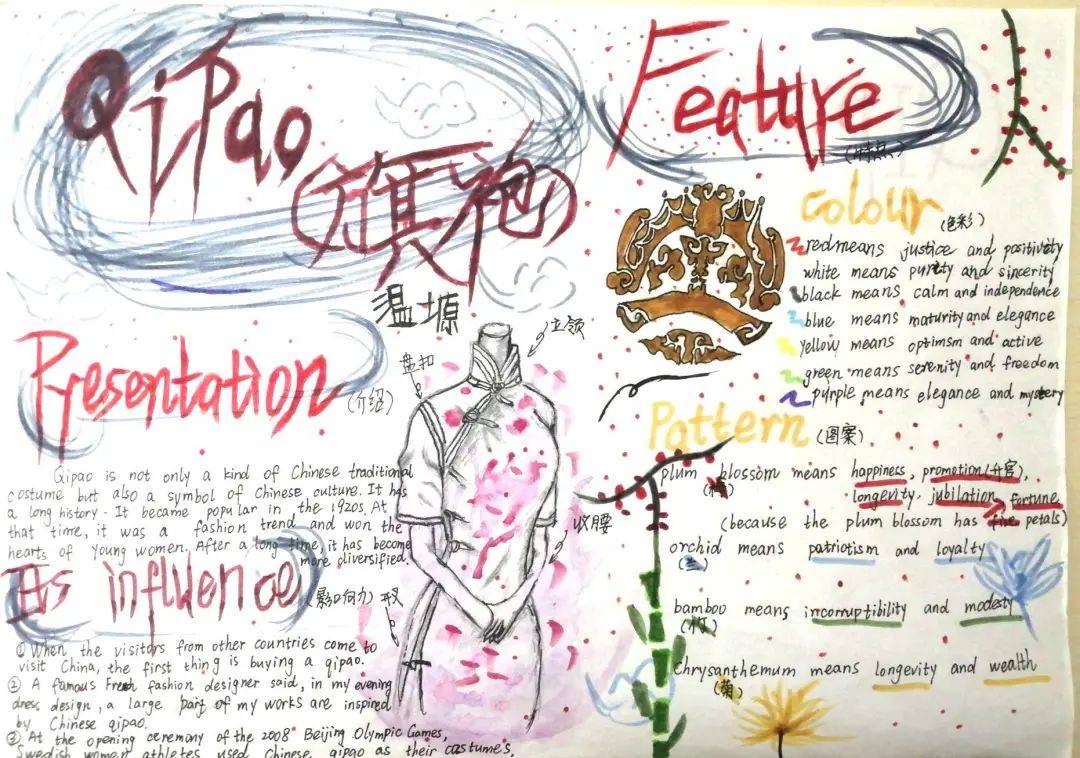 QiPao
(旗袍)
温塬
Presentation
(介绍)
Qipao is not only a kind of Chinese traditional
costume but also a symbol of Chinese culture. It has
a long history. It became popular in the 1920s. At
that time, it was a fashion trend and won the
hearts of young women. After a long time, it has become
more diversified.
Its influence
(影响力)
① When the visitors from other countries come to
visit China, the first thing is buying a qipao.
② A famous fashion designer said, in my evening
dress design, a large part of my works are inspired
by Chinese qipao.
③ At the opening ceremony of the 2008 Beijing Olympic Games,
Swedish women athletes used Chinese qipao as their costume's
盘扣
立领
收腰
开叉
Feature
(特点)
Colour
(色彩)
red means justice and positivety
white means purity and sincerity
black means calm and independence
blue means maturity and elegance
yellow means optimsm and active
green means serenity and freedom
purple means elegance and mystery
Pattern
(图案)
plum blossom means happiness, promotion(升官),
(梅)
longevity, jubilation, fortune
(because the plum blossom has five petals)
orchid means patriotism and loyalty
(兰)
bamboo means incorruptibility and modesty
Chrysanthemum means longevity and wealth
(菊)